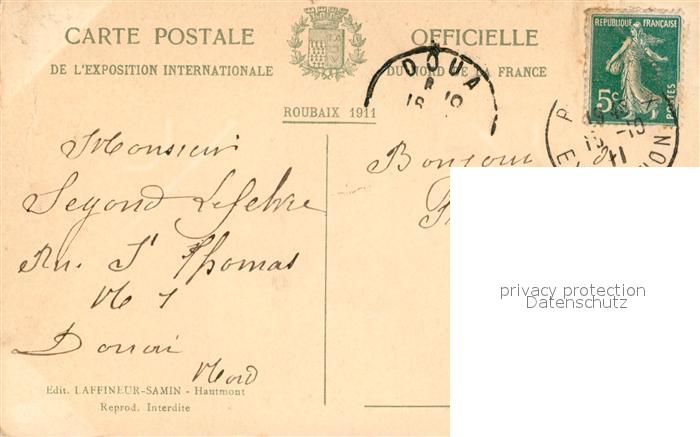 CARTE POSTALE OFFICIELLE
DE L'EXPOSITION INTERNATIONALE DU NORD DE LA FRANCE
ROUBAIX 1911
REPUBLIQUE FRANÇAISE
5c
POSTES
DOUA
Monsieur
Segond Lefebvre
Rue St Thomas
No 7
Douai
Nord
Bonjour
Edit. LAFFINEUR-SAMIN - Hautmont
Reprod. Interdite
privacy protection
Datenschutz